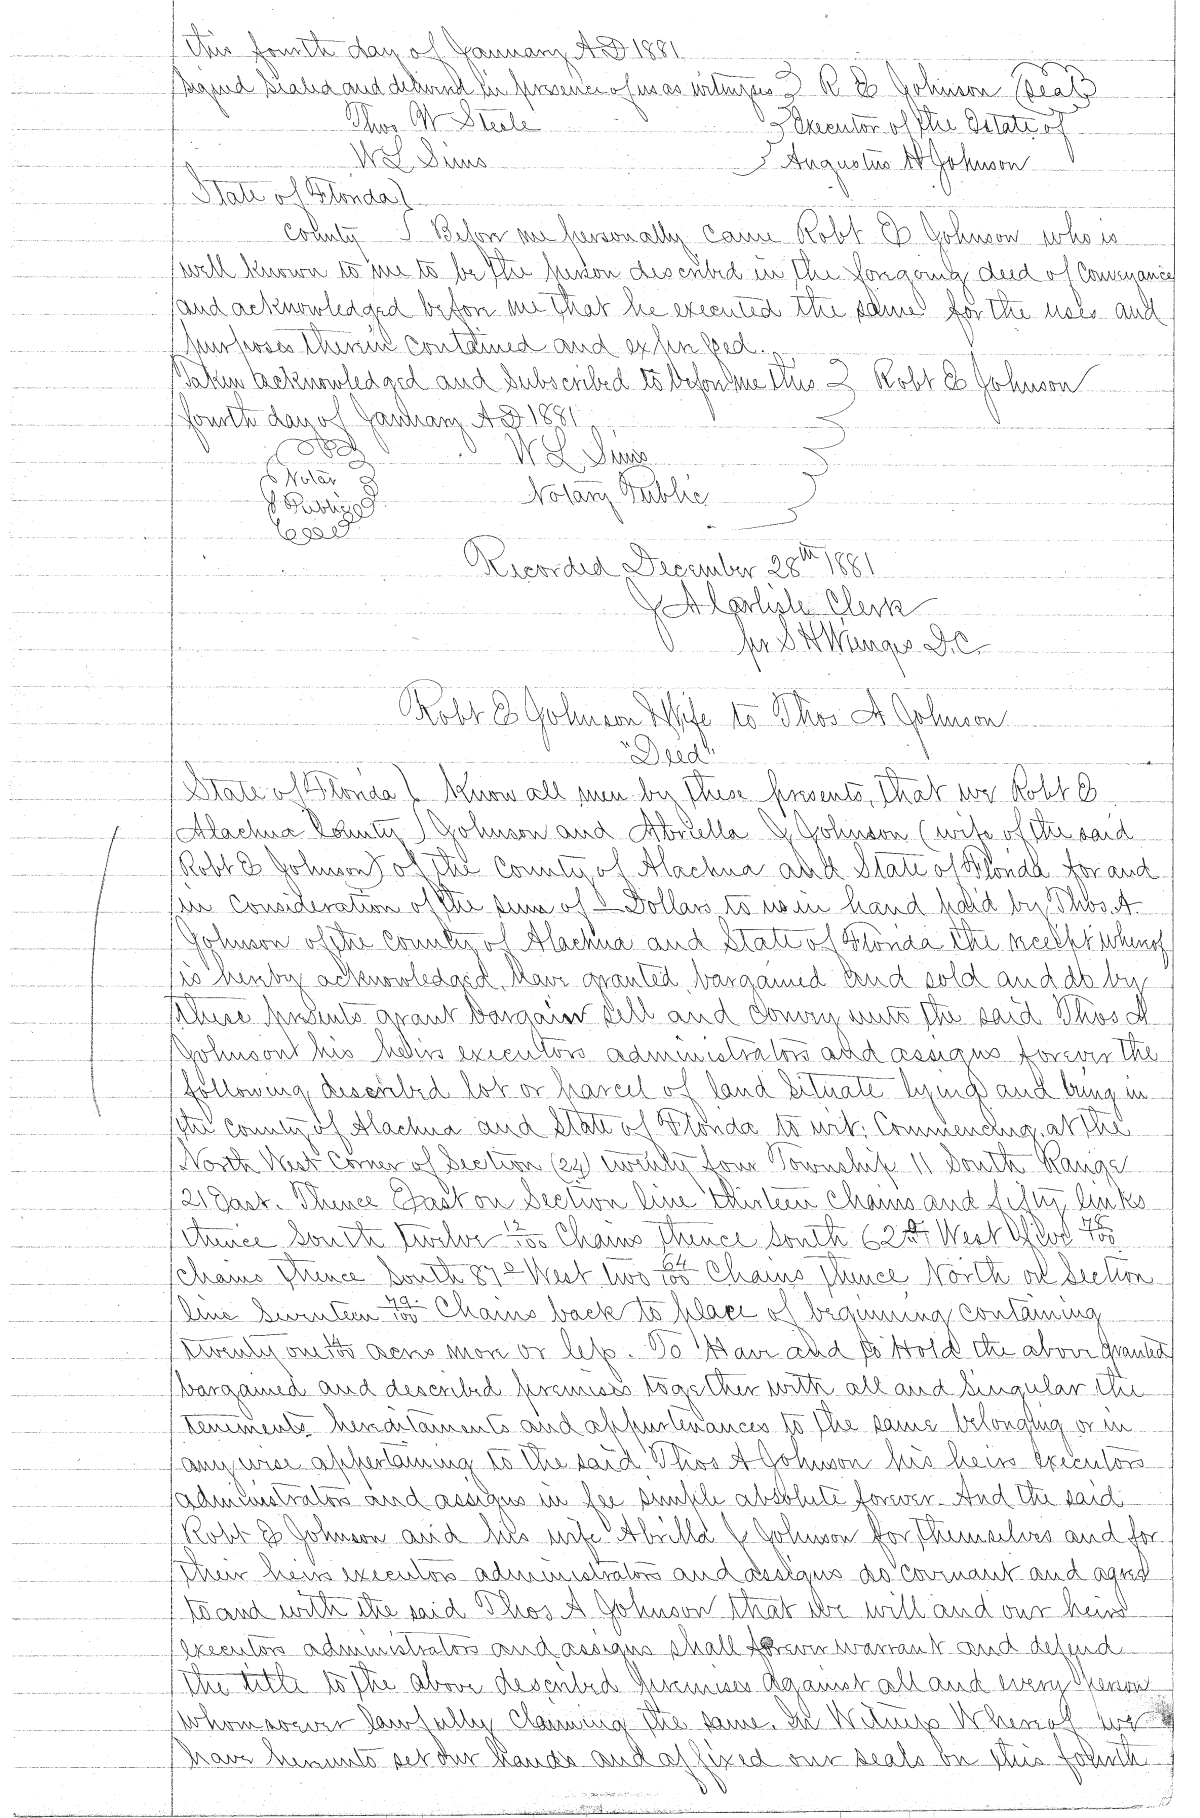 this fourth day of January A D 1881
signed sealed and delivered in presence of us as witnesses } R E Johnson (seal)
Thos W Steele } Executor of the Estate of
W L Sims } Augustus H Johnson
State of Florida }
County } Before me personally came Robt E Johnson who is
well known to me to be the person described in the foregoing deed of Conveyance
and acknowledged before me that he executed the same for the uses and
purposes therein contained and expressed.
Taken acknowledged and subscribed to before me this } Robt E Johnson
fourth day of January A D 1881
W L Sims
Notar
Public
Notary Public
Recorded December 28th 1881
J A Carlisle Clerk
pr S H Wienges D.C.
Robt E Johnson & Wife to Thos A Johnson
"Deed"
State of Florida } Know all men by these presents, that we Robt E
Alachua County } Johnson and Abriella J Johnson (wife of the said
Robt E Johnson) of the County of Alachua and State of Florida for and
in consideration of the sum of — Dollars to us in hand paid by Thos. A.
Johnson of the county of Alachua and State of Florida the receipt whereof
is hereby acknowledged, have granted, bargained and sold and do by
these presents grant bargain sell and convey unto the said Thos A
Johnson his heirs executors administrators and assigns forever the
following described lot or parcel of land situate lying and being in
the county of Alachua and State of Florida to wit: Commencing at the
North West Corner of Section (24) twenty four Township 11 South Range
21 East. Thence East on Section line thirteen chains and fifty links
thence South twelve 12/100 Chains thence South 62° West five 78/100
chains thence South 87° West two 64/100 Chains thence North on Section
line Seventeen 79/100 Chains back to place of beginning containing
twenty one 14/100 acres more or less. To Have and to Hold the above granted
bargained and described premises together with all and Singular the
tenements hereditaments and appurtenances to the same belonging or in
any wise appertaining to the said Thos A Johnson his heirs executors
administrators and assigns in fee simple absolute forever. And the said
Robt E Johnson and his wife Abrilla J Johnson for themselves and for
their heirs executors administrators and assigns do covenant and agree
to and with the said Thos A Johnson that we will and our heirs
executors administrators and assigns shall forever warrant and defend
the title to the above described premises against all and every person
whomsoever lawfully claiming the same. In Witness Whereof we
have hereunto set our hands and affixed our seals on this fourth